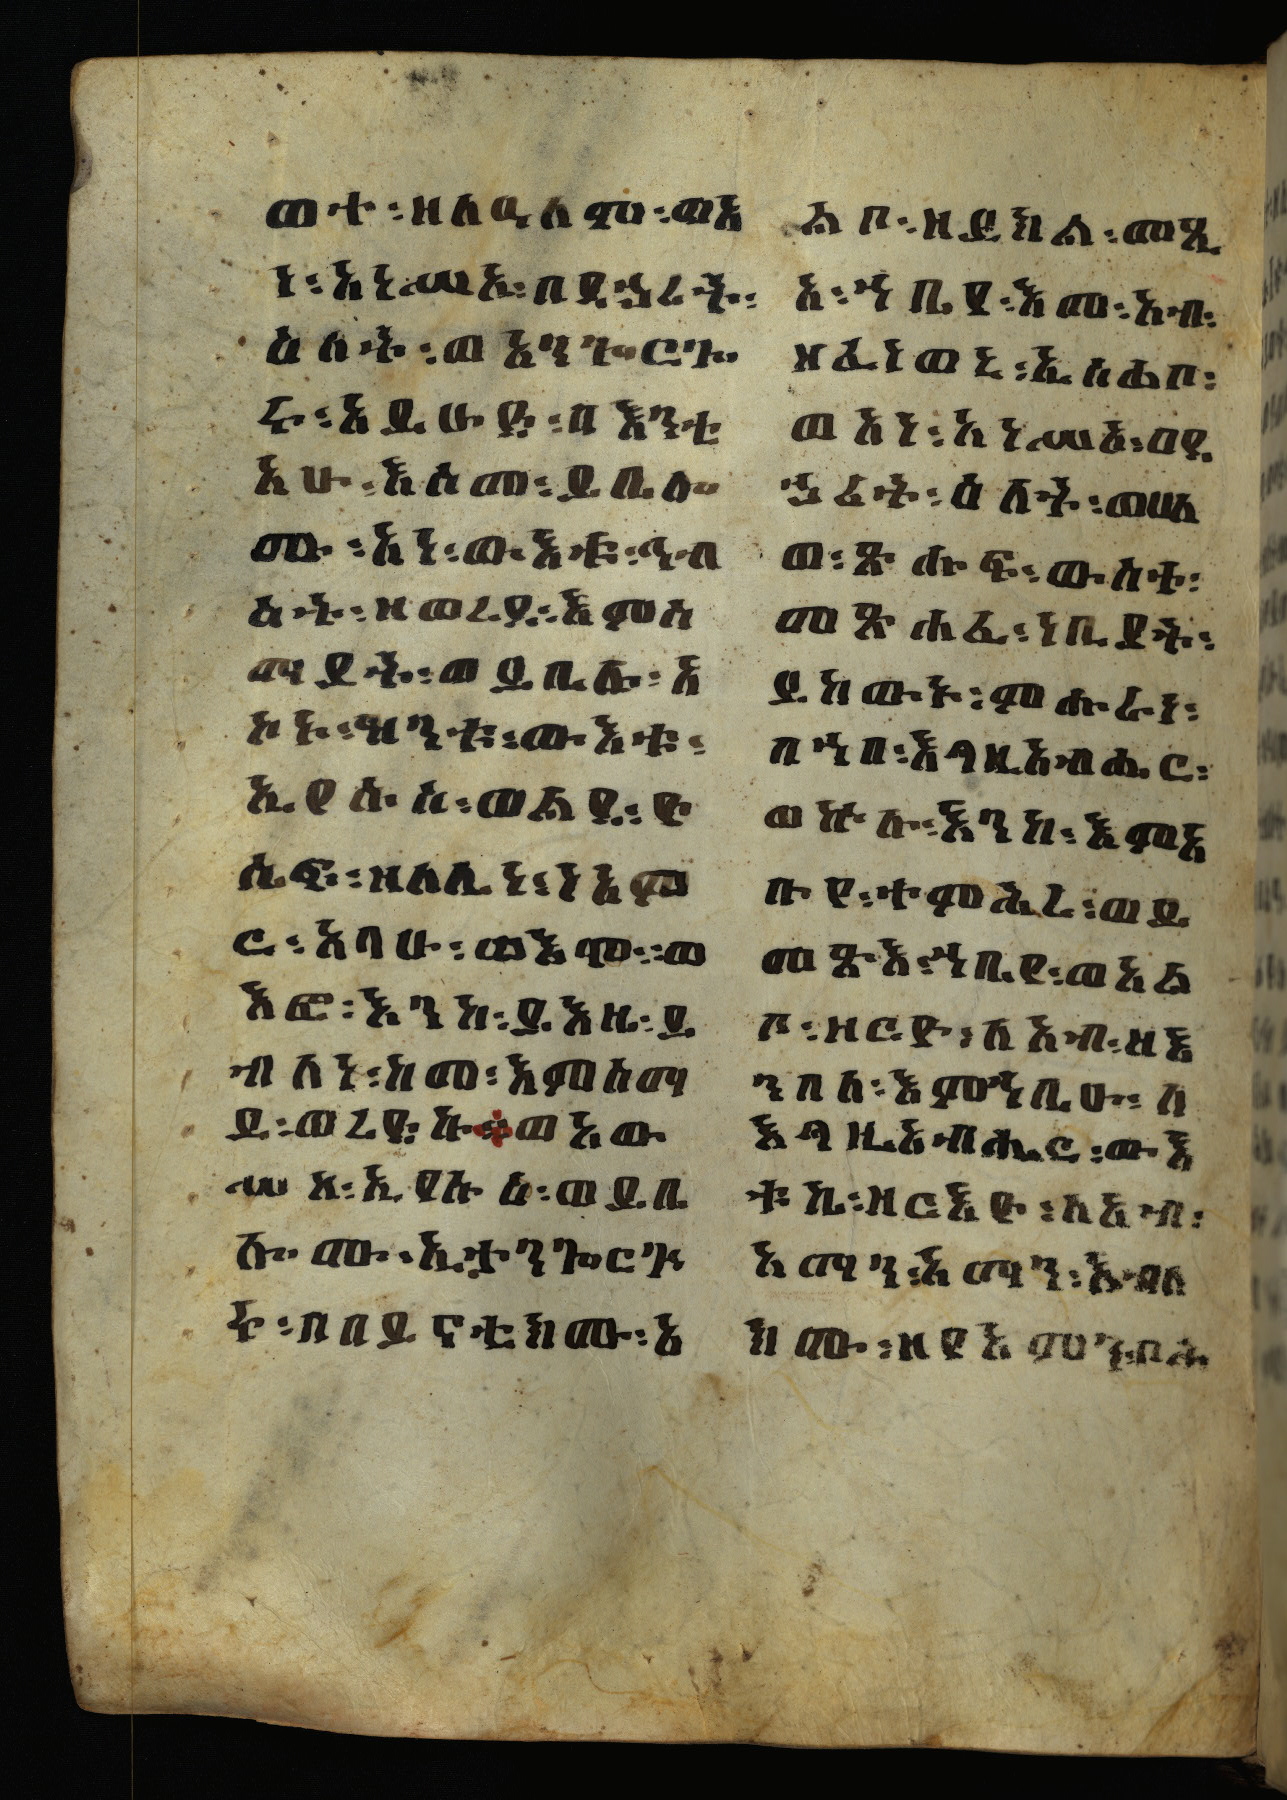 ወተ፡ዘለዒለም፡ወእ
ነ፡አነሠእኦ፡በደኃሪት፡
ዕለት፡ወአንጐርጐ
ሩ፡አይሁድ፡በእንቲ
አሁ፡እስመ፡ይቤሎ
ሙ፡አነ፡ውእቱ፡ኅብ
ስት፡ዘወረደ፡እምሰ
ማያት፡ወይቤሉ፡አ
ኮኑ፡ዝንቱ፡ውእቱ፡
ኢየሱስ፡ወልደ፡ዮ
ሴፍ፡ዘለሊነ፡ነአም
ር፡አባሁ፡ወእሞ፡ወ
እፎ፡እንከ፡ይእዜ፡ይ
ብለነ፡ከመ፡እምሰማ
ይ፡ወረድኩ፨ወአው
ሥአ፡ኢየሱስ፡ወይቤ
ሎሙ፡ኢታንጐርጕ
ሩ፡በበይናቲክሙ፡አ
ልቦ፡ዘይክል፡መጺ
አ፡ኀቤየ፡እመ፡አብ፡
ዘፈነወኒ፡ኢሰሐቦ፡
ወአነ፡አነሥኦ፡በደ
ኃሪት፡ዕለት፡ወሀለ
ወ፡ጽሑፍ፡ውስተ፡
መጽሐፈ፡ነቢያት፡
ይከውኑ፡ምሁራነ፡
በኀበ፡እግዚአብሔር፡
ወኵሉ፡እንከ፡እምአ
ቡየ፡ተምሕረ፡ወይ
መጽእ፡ኀቤየ፡ወአል
ቦ፡ዘርእዮ፡ለአብ፡ዘእ
ንበለ፡እምኀቤሁ፡ለ
እግዚአብሔር፡ውእ
ቱኬ፡ዘርእዮ፡ለአብ፡
አማን፡አማን፡እብለ
ክሙ፡ዘየአምን፡